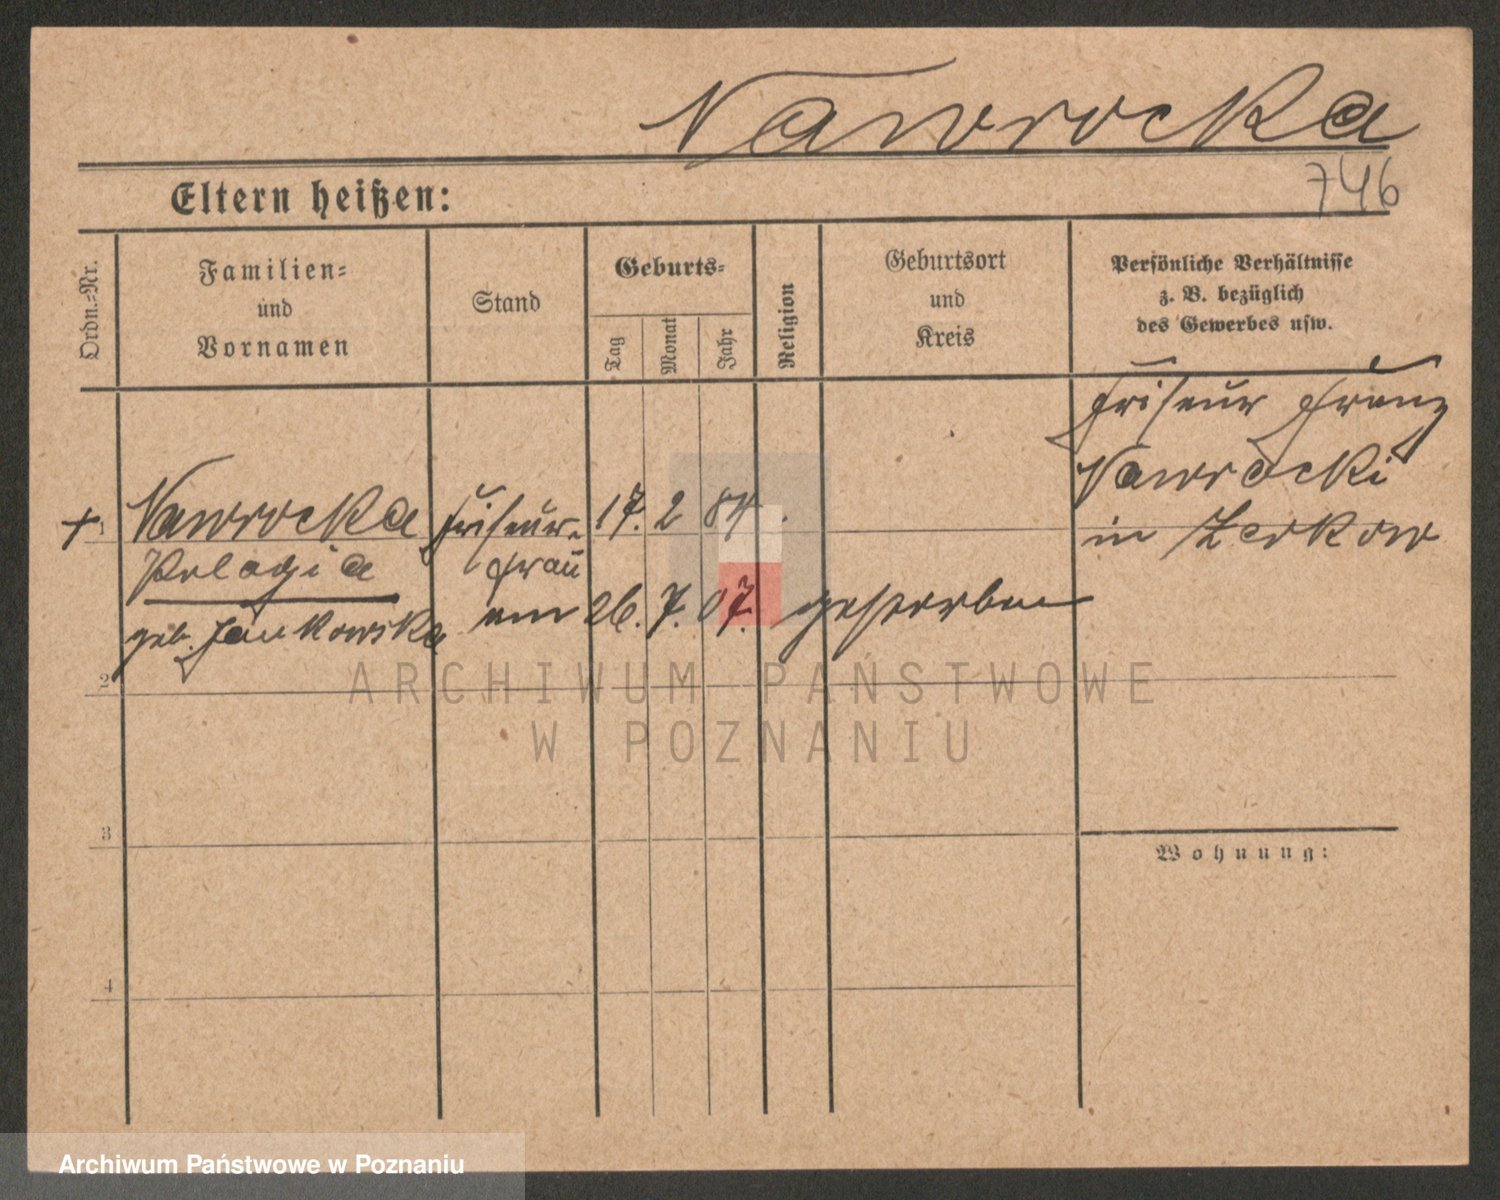 Nawrocka
746
Eltern heißen:
Ordn.-Nr.
Familien-
und
Vornamen
Stand
Geburts-
Tag
Monat
Jahr
Religion
Geburtsort
und
Kreis
Persönliche Verhältnisse
z. B. bezüglich
des Gewerbes usw.
Friseur Franz
Nawrocki
in Zerkow
+ 1 Nawrocka Friseur- 17. 2 84.
Pelagia frau
geb. Jankowska am 26. 7. 07. gestorben
2
3
4
Wohnung:
ARCHIWUM PAŃSTWOWE
W POZNANIU
Archiwum Państwowe w Poznaniu